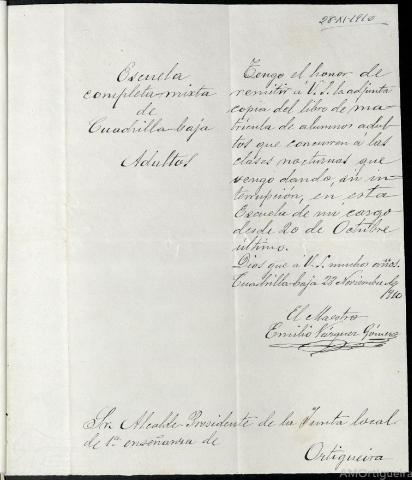 28-XI-1910
Escuela
completa-mixta
de
Cuadrilla-baja
Adultos
Tengo el honor de
remitir á V. S. la adjunta
copia del libro de ma-
trícula de alumnos adul-
tos que concurren á las
clases nocturnas que
vengo dando, sin in-
terrupción, en esta
Escuela de mi cargo
desde 20 de Octubre
último.
Dios que á V. S. muchos años.
Cuadrilla-baja 28 Noviembre de
1910
El Maestro
Emilio Vázquez Gómez
Sr. Alcalde-Presidente de la Junta local
de 1ª enseñanza de
Ortigueira
AMOrtigueira